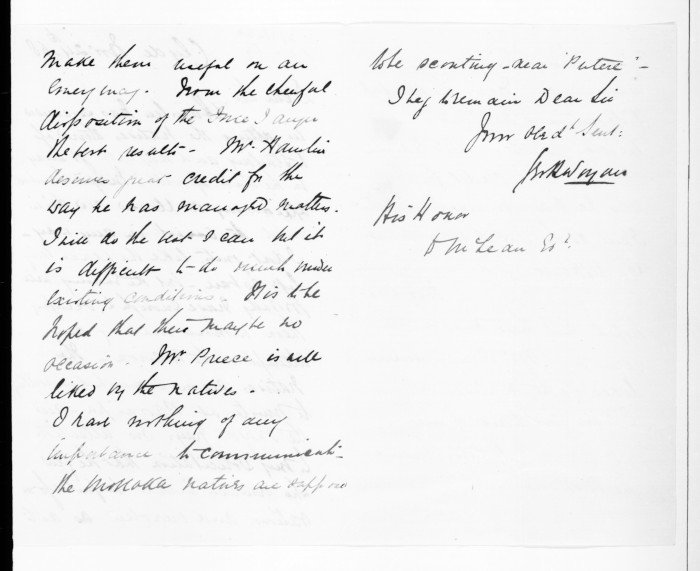 make them useful on an
Emergency. From the cheerful
disposition of the Force I augur
the best results - Mr Hamlin
deserves great credit for the
way he has managed matters.
I will do the best I can but it
is difficult to do much under
existing conditions. It is to be
hoped that there may be no
occasion. Mr Preece is well
liked by the natives.
I have nothing of any
importance to communicate -
the Mohaka natives are suppose
to be scouting - near 'Putere' -
I beg to remain Dear Sir
Your Obedt Servt:
His Honor
D McLean Esqr.